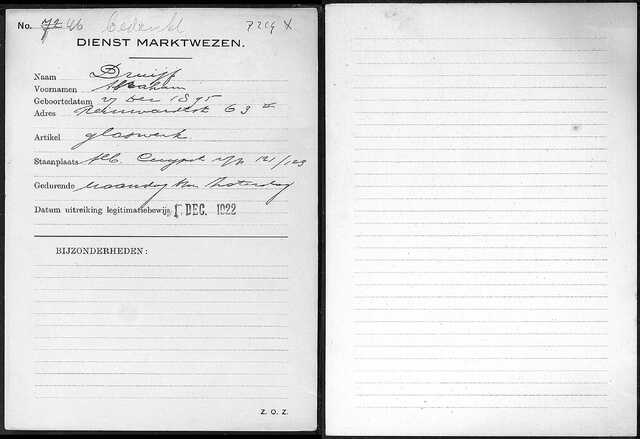 No. 7246 bedankt 7204 X
DIENST MARKTWEZEN.
Naam Druijf
Voornamen Abraham
Geboortedatum 27 Dec 1895
Adres 63 II
Artikel glaswerk
Staanplaats Alb. Cuypst 121/123
Gedurende Maandag t/m Zaterdag
Datum uitreiking legitimatiebewijs DEC. 1922
BIJZONDERHEDEN:
Z. O. Z.